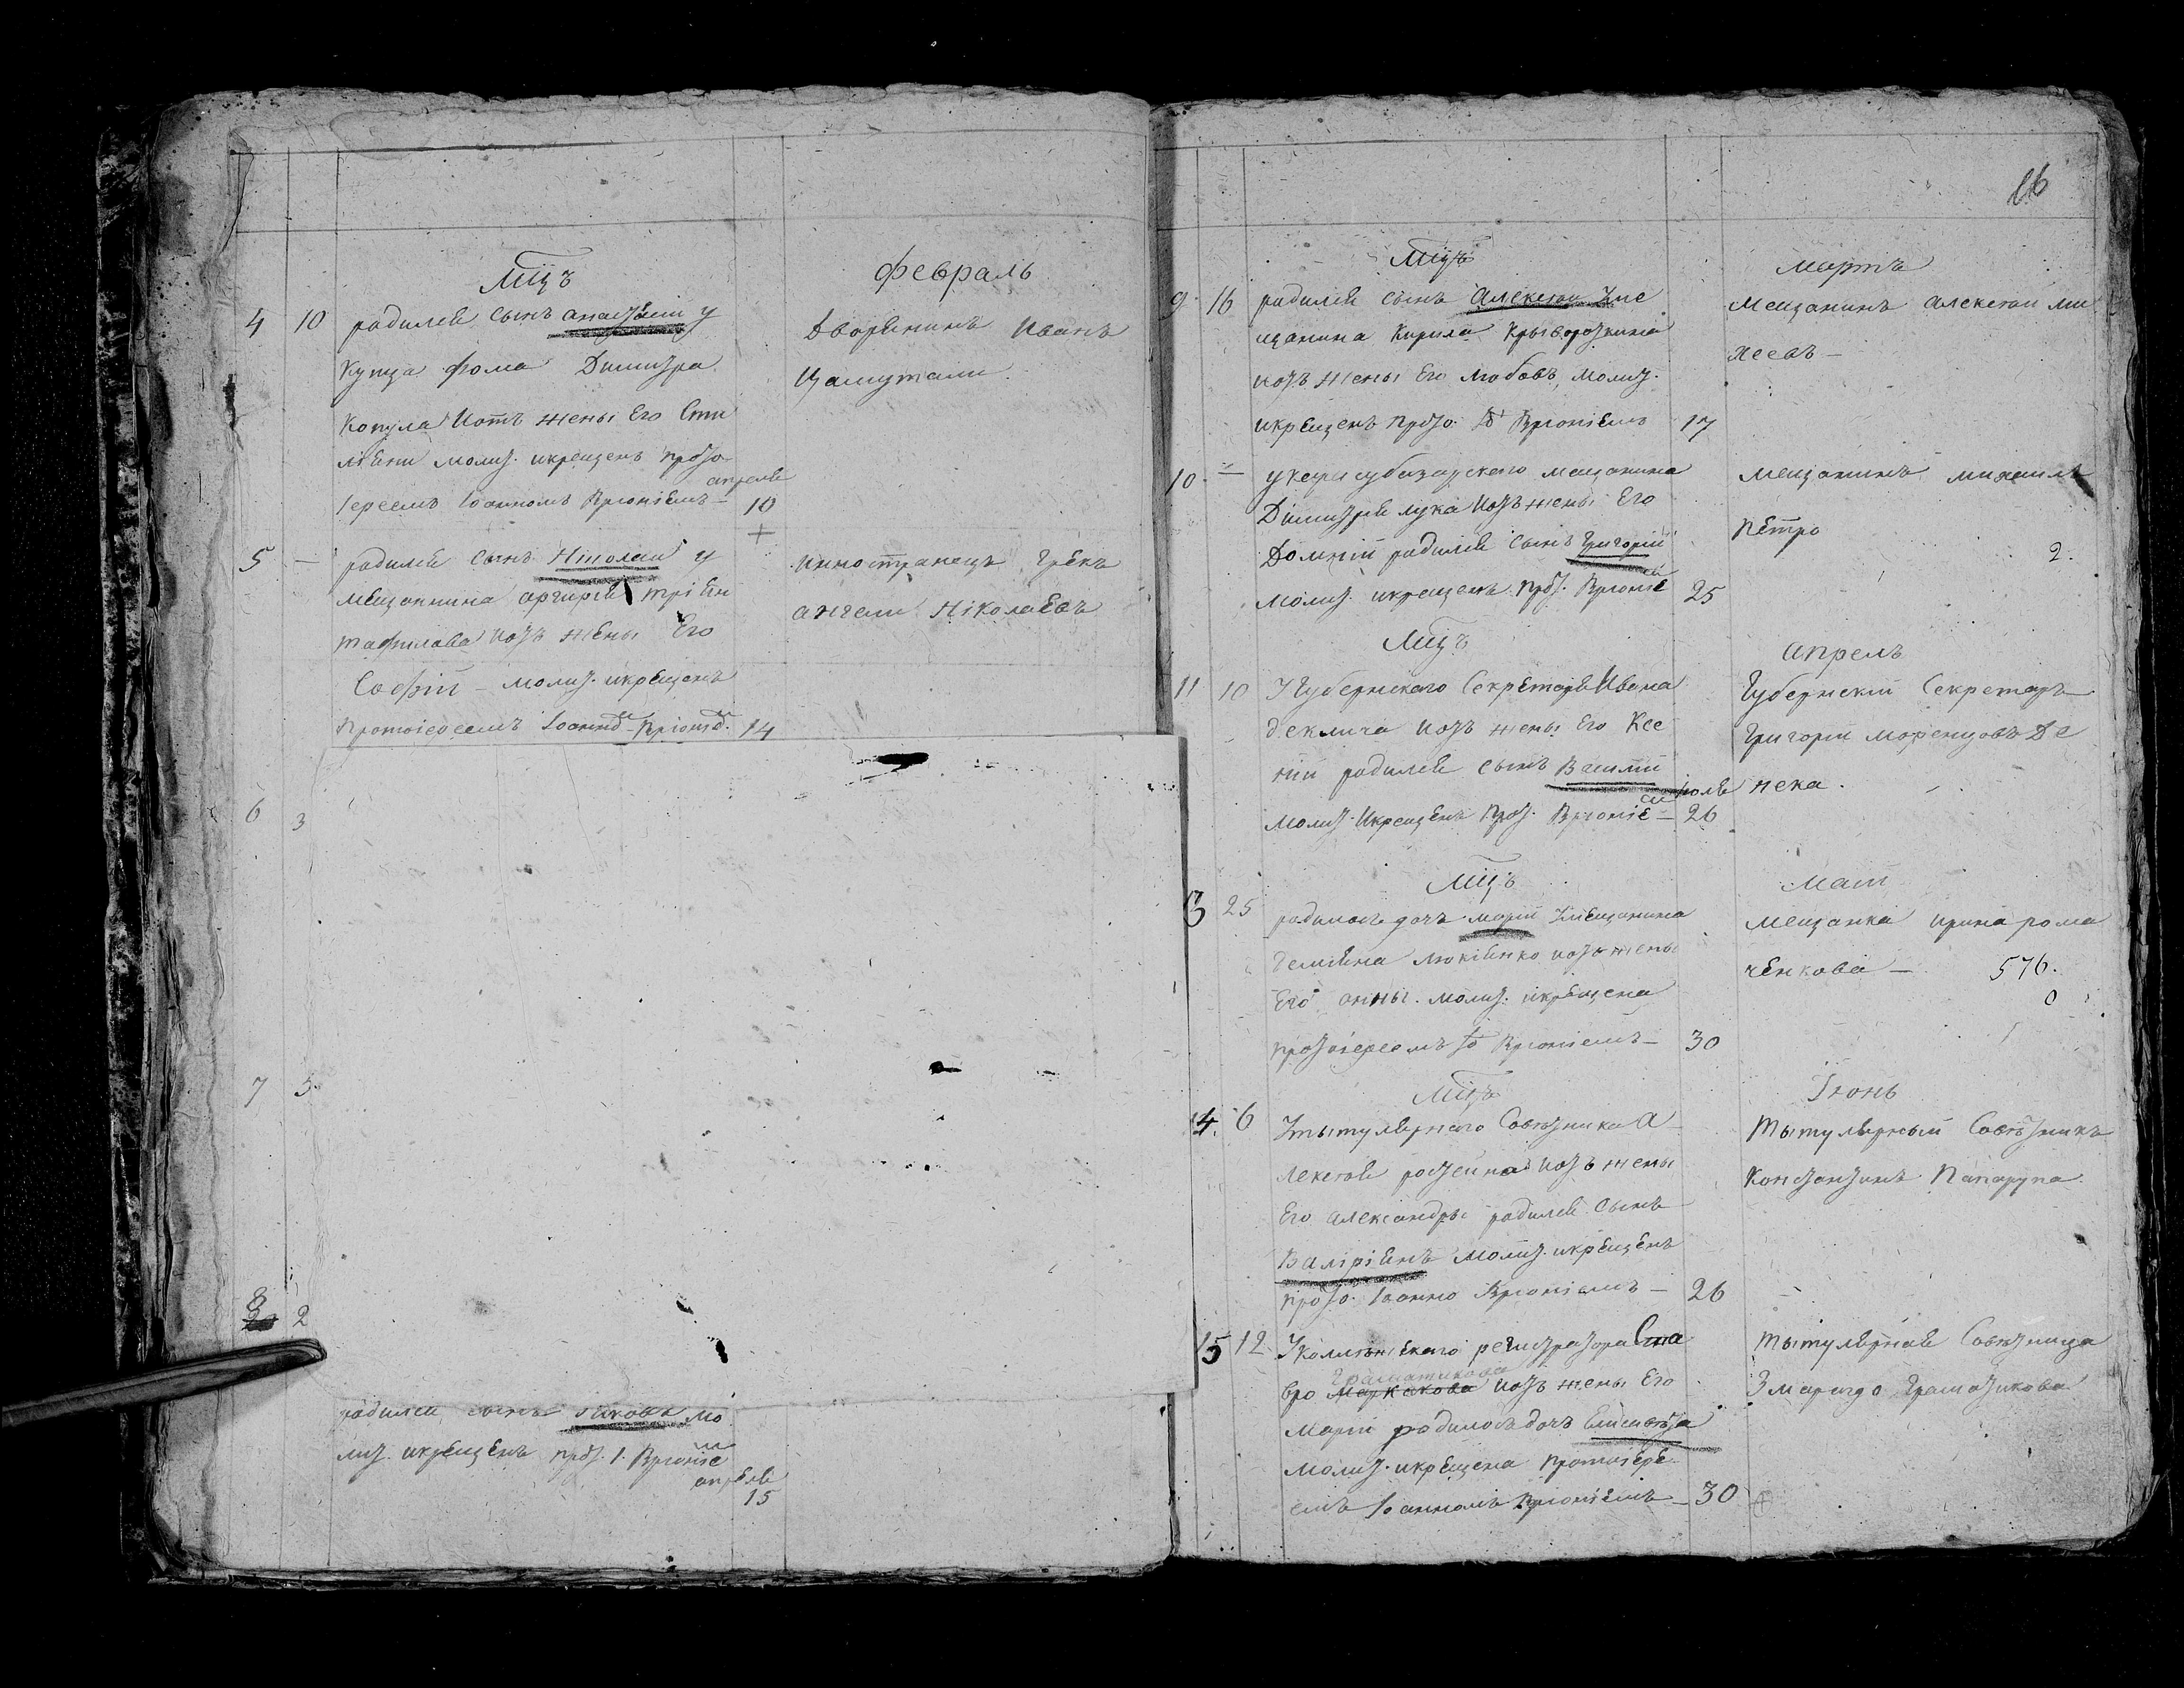 Мцъ
Февраль
4 10 родилсѧ сынъ анастасій у
купца фома Димитра
Копула Иотъ жены Его Сти
лiѧни молит. икрещенъ прото
іереемъ Іоанномъ Вріоніемъ — апрелѧ 10
Дворѧнинъ Иванъ
5 — родилсѧ сынъ Ніколай у
мещаннина аргирій трiѧн
тафилова изъ жены Его
Софій — молит. икрещенъ
протоіереемъ Іоанно м Вріоніе м. 14
инностранецъ грекъ
ангели Ніколаевъ
6 3
7 5
8 2
родилсѧ сынъ Іяковъ мо
лит. икрещенъ прот. І. Вріоніе м
апрѣлѧ
15
16
Мцъ
Мартъ
9 16 родилсѧ сынъ Алексѣй Уме
щанина Кирила Крывороткина
изъ жены Его Любовъ, молит.
икрещенъ прото. Іо Вріоніемъ 17
Мещанинъ алексѣй ми
хеевъ —
10 — мещанина
Димитрѧ лука изъ жены Его
Домній родилсѧ сынъ Григорій
молит. икрещенъ прот. Вріоніе м 25
мещанинъ михаилъ
Пѣтро
2.
Мцъ
апрель
11 10 У Губернскаго Секретарѧ Ивана
деклича изъ жены Его Ксе
ній родилсѧ сынъ Василій
молит. Икрещенъ Прот. Вріоніе м — 26
Губернскій Секретарь
Григорій
нека.
Мцъ
Маій
13 25 родиласъ дочъ марій Умещанина
изъ жены
Его анны. молит. икрещена
протоіереемъ Іо Вріоніемъ — 30
мещанка ирина рома
ченкова — 576.
0
Мцъ
Іюнь
14. 6 Утытулѧрнаго Совѣтника А
лексѣѧ изъ жены
Его александры родилсѧ сынъ
Валіріѧнъ молит. икрещенъ
прото. Іоанно Вріоніемъ — 26
Тытулѧрный Совѣтникъ
Константинъ Папарупа
15 12 У регистратора Ста
вро Маркакова Граматикова изъ жены Его
марій родиласъ дочъ Елисавета
молит. икрещена протоіере
емъ Іоанномъ Вріоніемъ — 30
Тытулѧрнаѧ Совѣтница
Змарагдо Граматикова